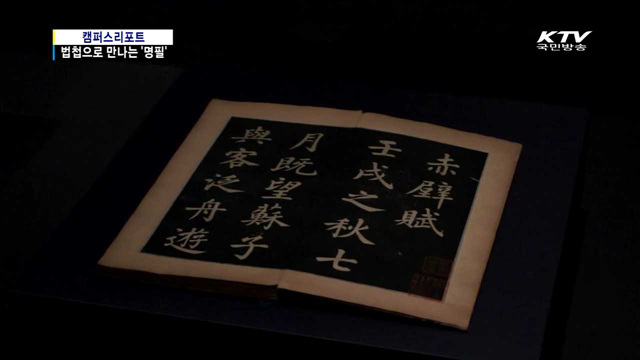 캠퍼스리포트
법첩으로 만나는 '명필'
KTV
국민방송
赤壁賦
壬戌之秋七
月既望蘇子
與客泛舟遊